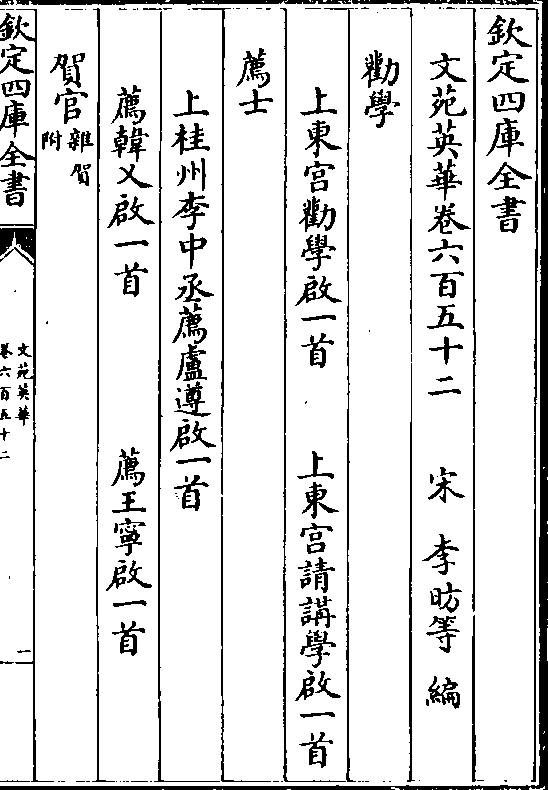 欽定四庫全書
文苑英華卷六百五十二　宋　李昉等　編
勸學
上東宫勸學啟一首　上東宫請講學啟一首
薦士
上桂州李中丞薦盧遵啟一首
薦韓乂啟一首　薦王寧啟一首
賀官雜賀附
欽定四庫全書
文苑英華
卷六百五十二
一